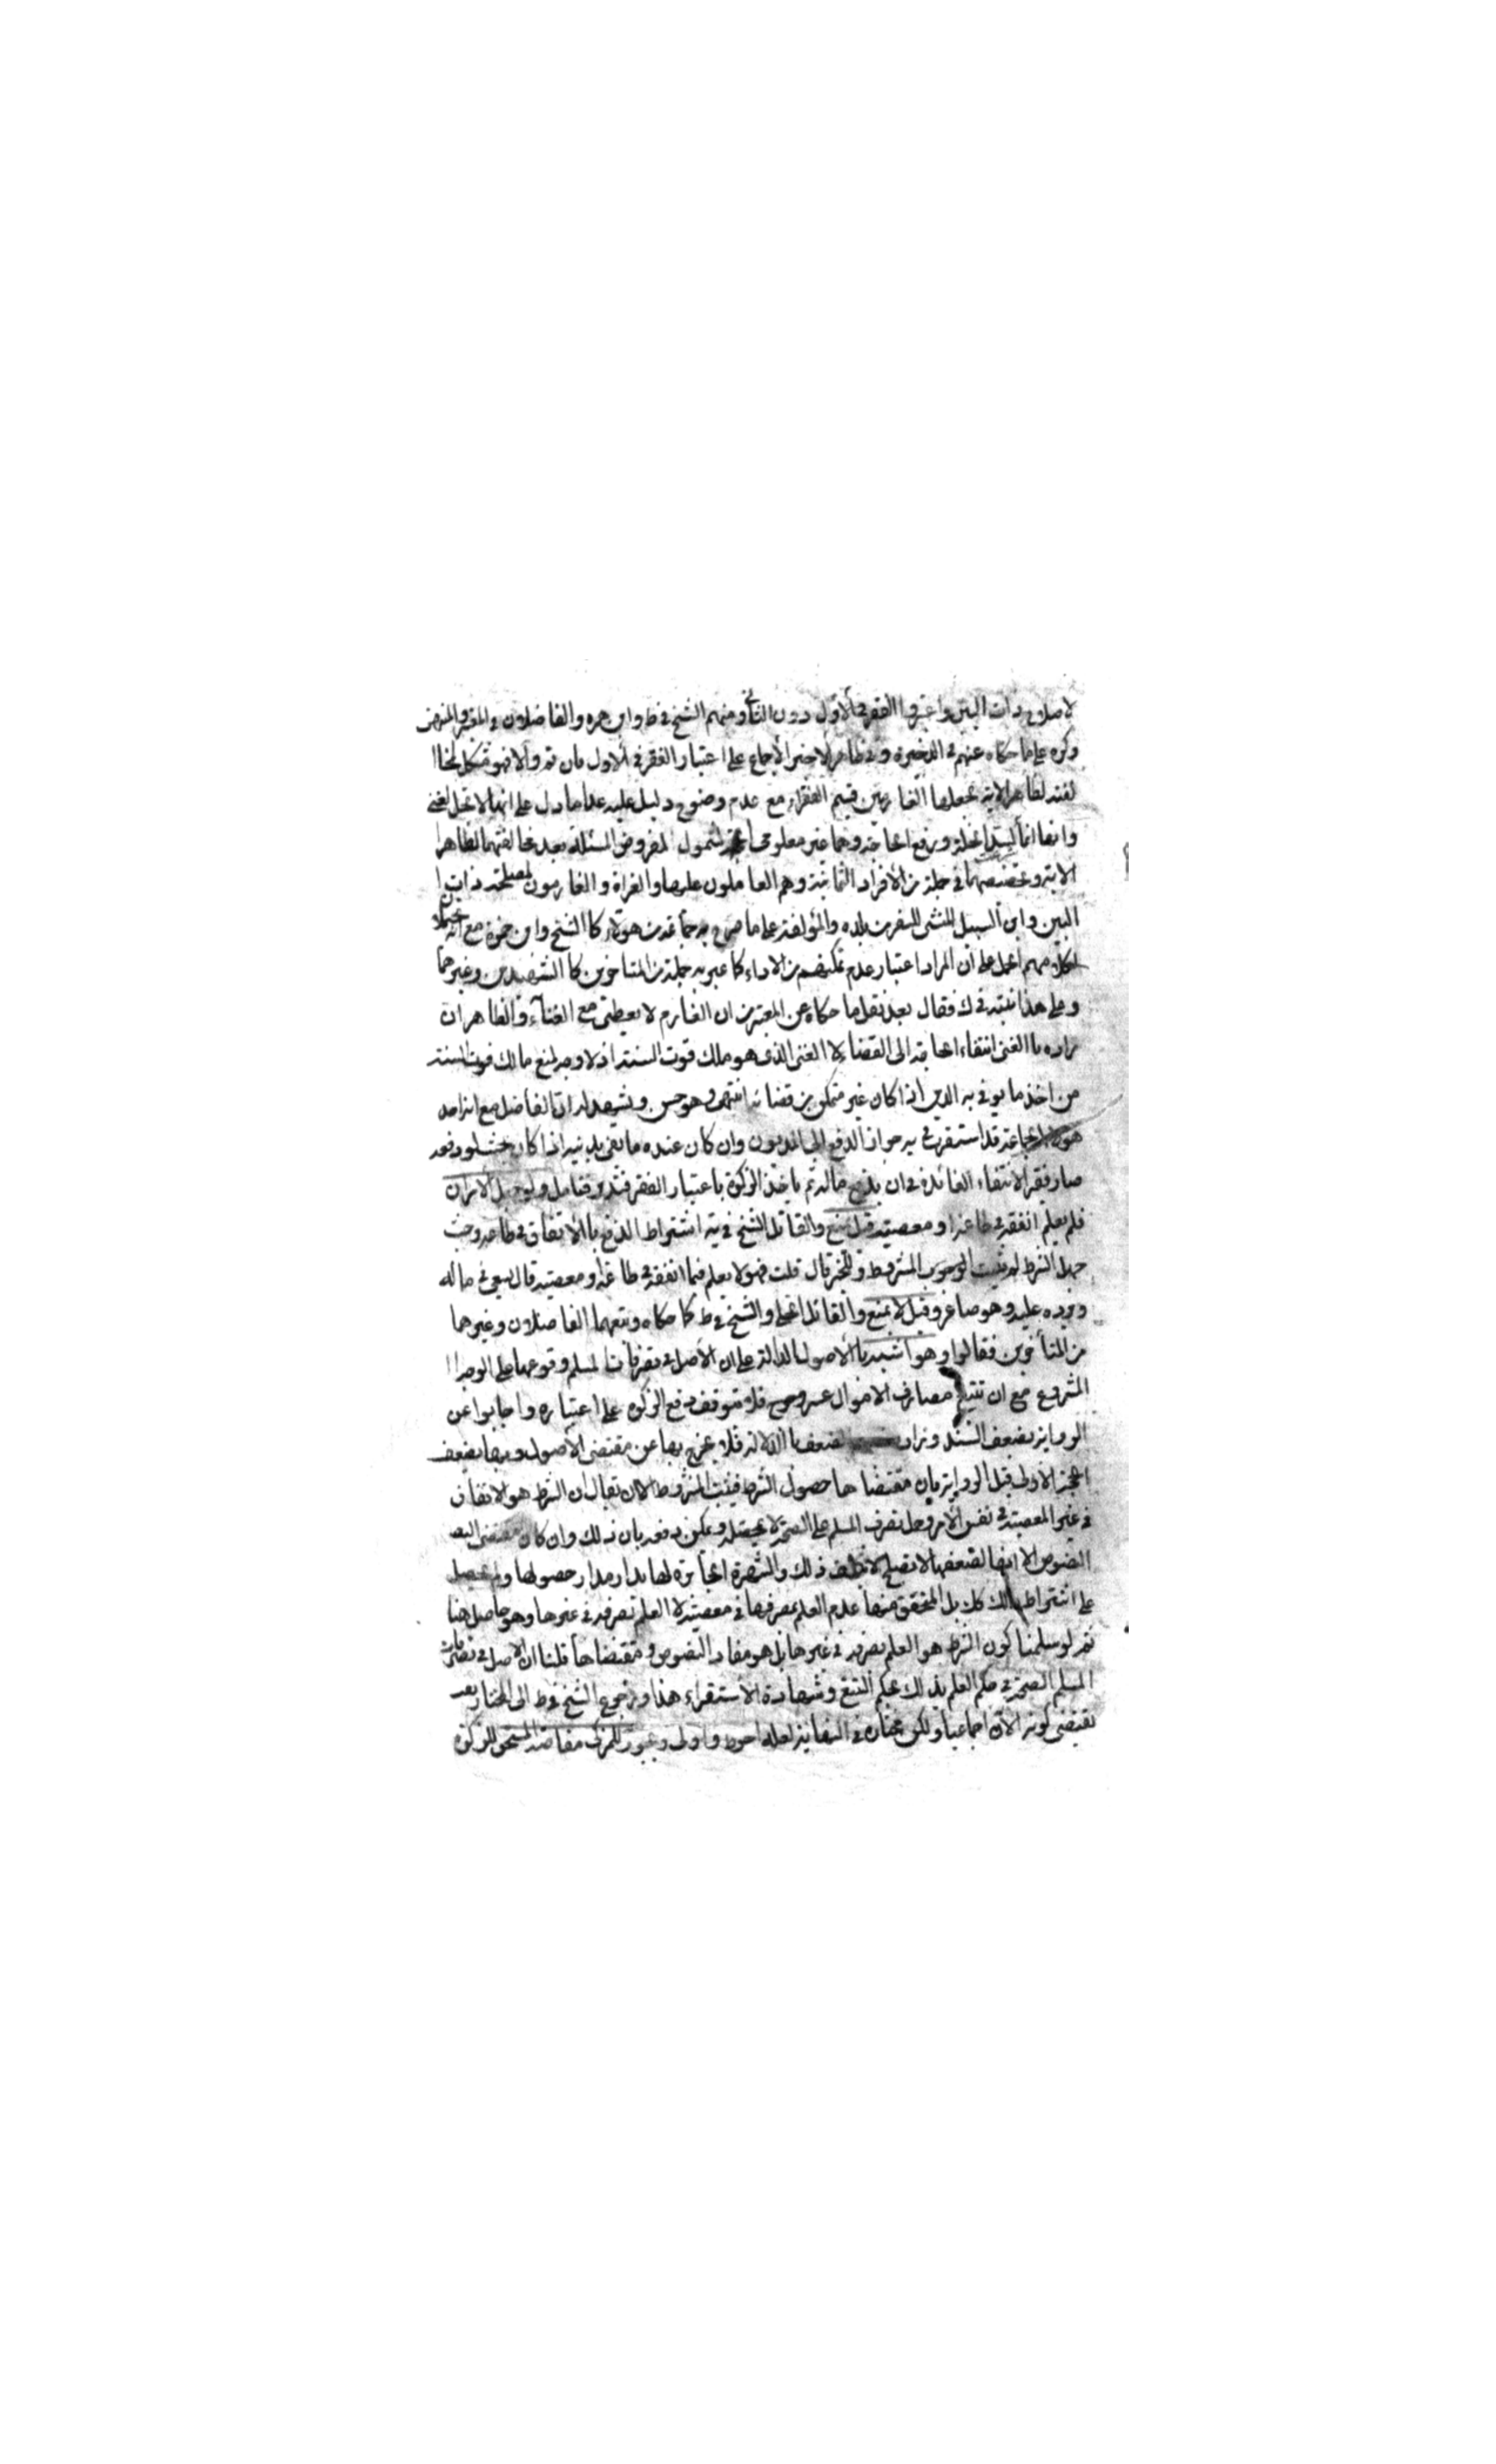 لاصلاح ذات البين واعتبروا الفقر في الأول دون الثاني ومنهم الشيخ في ط وابن حمزه والفاضلان في المعتبر والمنتهى
وكره على ما حكاه عنهم في الذخيرة وفي ظاهر الاخير الأجماع على اعتبار الفقر في الاول فان تم والا فهو مشكل لمخا
لفته لظاهر الاية بجعلها الغارمين قسيم الفقراء مع عدم وضوح دليل عليه عدا ما دل على انها لا تحل لغنى
وانها انما لسد الخلة ورفع الحاجة وهما غير معلومى الشمول لمفروض المسئلة بعد مخالفتهما لظاهرا
الاية وتخصيصهما في جملة من الأفراد الثمانية وهم العاملون عليها والغزاة والغارمون لمصلحة ذات ا
البين وابن السبيل المنشى للسفر من بلده والمؤلفة على ما صرح به جماعة من هؤلاء كا الشيخ وابن حمزة مع انه يحتمل
لكلامهم الحمل على ان المراد اعتبار عدم تمكنهم من الاداء كا عبر به جملة من المتاخرين كا الشهيدين وغيرهما
وعلى هذا نبته في ك فقال بعد نقل ما حكاه عن المعتبر من ان الغارم لا يعطى مع الغناء والظاهر ان
مراده با الغنى انتفاء الحاجة الى القضاء لا الغنى الذى هو ملك قوت السنة اذ لا وجه لمنع مالك قوت السنة
من اخذ ما يوفى به الدين اذا كان غير متمكن من قضائه انتهى وهو حسن ويشهد له ان الفاضل مع انه احد
هؤلاء الجماعة قد استقرب في ير جواز الدفع الى المديون وان كان عنده ما يفى بدينه اذا كان بحيث لو دفعه
صار فقيرا لانتفاء الفائدة في ان يدفع ماله ثم ياخذ الزكوة باعتبار الفقر فتدبر فتامل ولو جهل الامران
فلم يعلم انفقه في طاعة او معصية قيل يمنع والقائل الشيخ في يه اشتراط الدفع با الانفاق في طاعة وحيث
جهل الشرط لم يثبت المشروط وللخبر قال قلت فهو لا يعلم فيما انفقه في طاعة او معصية قال يسعى في ماله
ويرده عليه وهو صاغر وقيل لا يمنع والقائل الحلى والشيخ في ط كا حكاه وتبعهما الفاضلان وغيرهما
من المتأخرين فقالوا وهو اشبه با الأصول الدالة على ان الأصل في تصرفات المسلم وقوعها على الوجه ا
المشروع مع ان تتبع مصارف الاموال عسر فلا يتوقف دفع الزكوة على اعتباره واجابوا عن
الرواية بضعف السند وزاد بضعف الدلالة فلا يخرج بها عن مقتضى الأصول وبها يضعف
الحجة الأولى قبل الرواية فان مقتضاها حصول الشرط فيثبت المشروط الا ان يقال ان الشرط هو الانفاق
في غير المعصية في نفس الأمر وحمل تصرف المسلم على الصحة لا يحصله ويمكن دفعه بان ذلك وان كان مقتضى
النصوص الا انها لضعفها لا تصلح لاثبات ذلك والشهرة الجابرة لها يدار مدار حصولها ولم يحصل
على اشتراط ذلك كك بل المتحقق منها عدم العلم بصرفها في معصية لا العلم بصرفه في غيرها وهو حاصل هنا
ثم لو سلمنا كون الشرط هو العلم بصرفه في غيرها بل هو مفاد النصوص ومقتضاها قلنا ان الأصل في تصرفات
المسلم الصحة في حكم العلم بذلك بحكم التتبع وشهادة الأستقراء هذا ورجوع الشيخ في ط الى المختار بعد
يقتضى كونه الآن اجماعيا ولكن مختاره في النهاية لعله احوط واولى ويجوز للمزكى مقاصة المستحق للزكوة